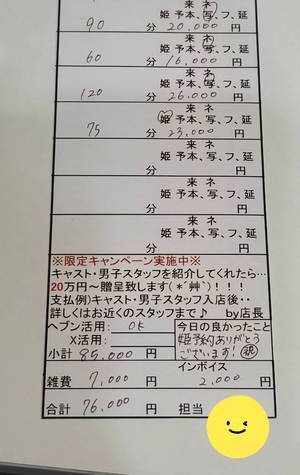 来 ネ
姫 予 本、写、フ、延
90 分 20,000 円
来 ネ
姫 予 本、写、フ、延
60 分 16,000 円
来 ネ
姫 予 本、写、フ、延
120 分 26,000 円
来 ネ
姫 予 本、写、フ、延
75 分 23,000 円
来 ネ
姫 予 本、写、フ、延
分 円
来 ネ
姫 予 本、写、フ、延
分 円
来 ネ
姫 予 本、写、フ、延
分 円
※限定キャンペーン実施中※
キャスト・男子スタッフを紹介してくれたら…
20万円～贈呈致します(*´艸`)！！！
支払例)キャスト・男子スタッフ入店後・・
詳しくはお近くのスタッフまで♪ by店長
ヘブン活用： OK
X活用：
今日の良かったこと
姫予約ありがとう
ございます！ 祝
小計 85,000 円
雑費 7,000 円
インボイス
2,000 円
合計 76,000 円 担当